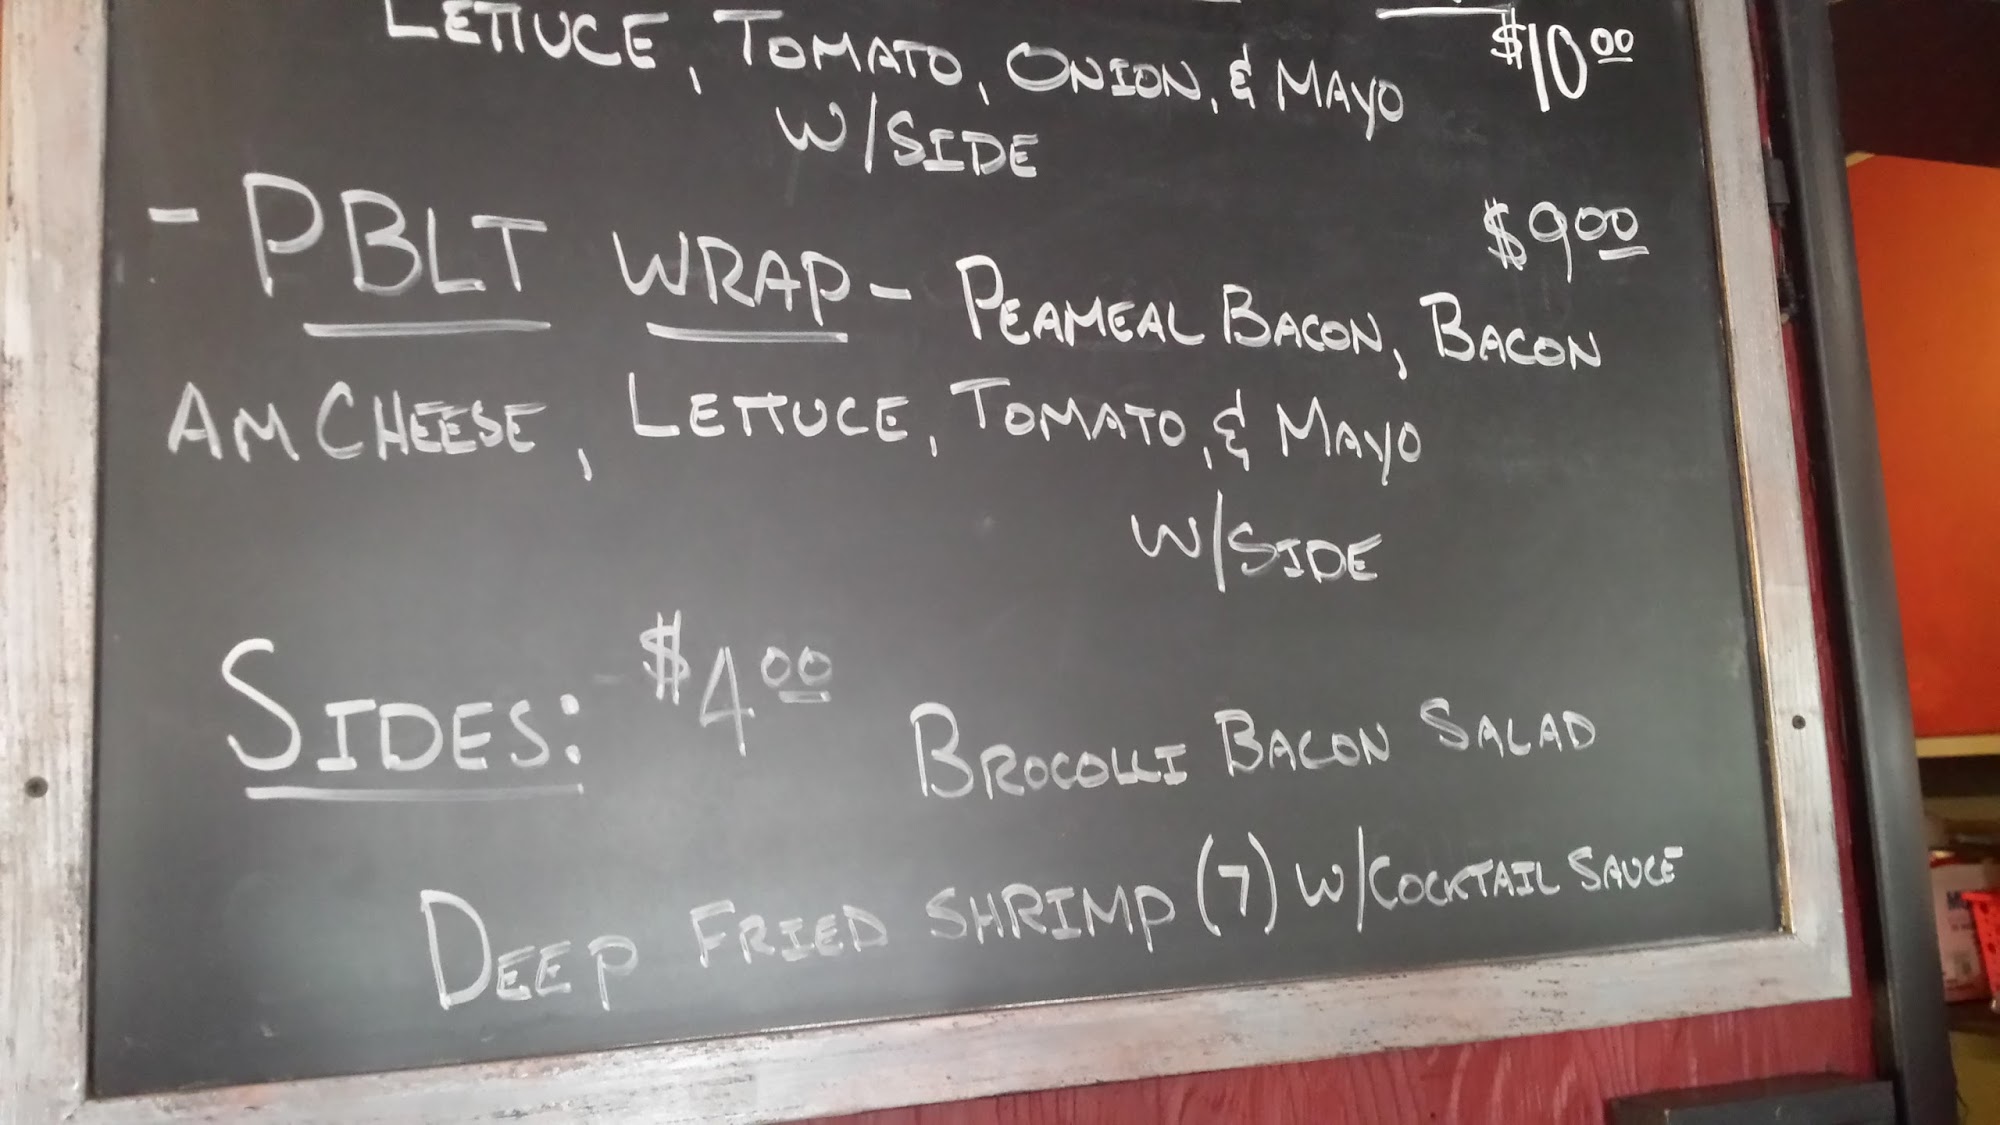 LETTUCE, TOMATO, ONION, & MAYO $10.00
W/SIDE
- PBLT WRAP - PEAMEAL BACON, BACON $9.00
AM CHEESE, LETTUCE, TOMATO, & MAYO
W/SIDE
SIDES: $4.00 BROCOLLI BACON SALAD
DEEP FRIED SHRIMP (7) W/COCKTAIL SAUCE